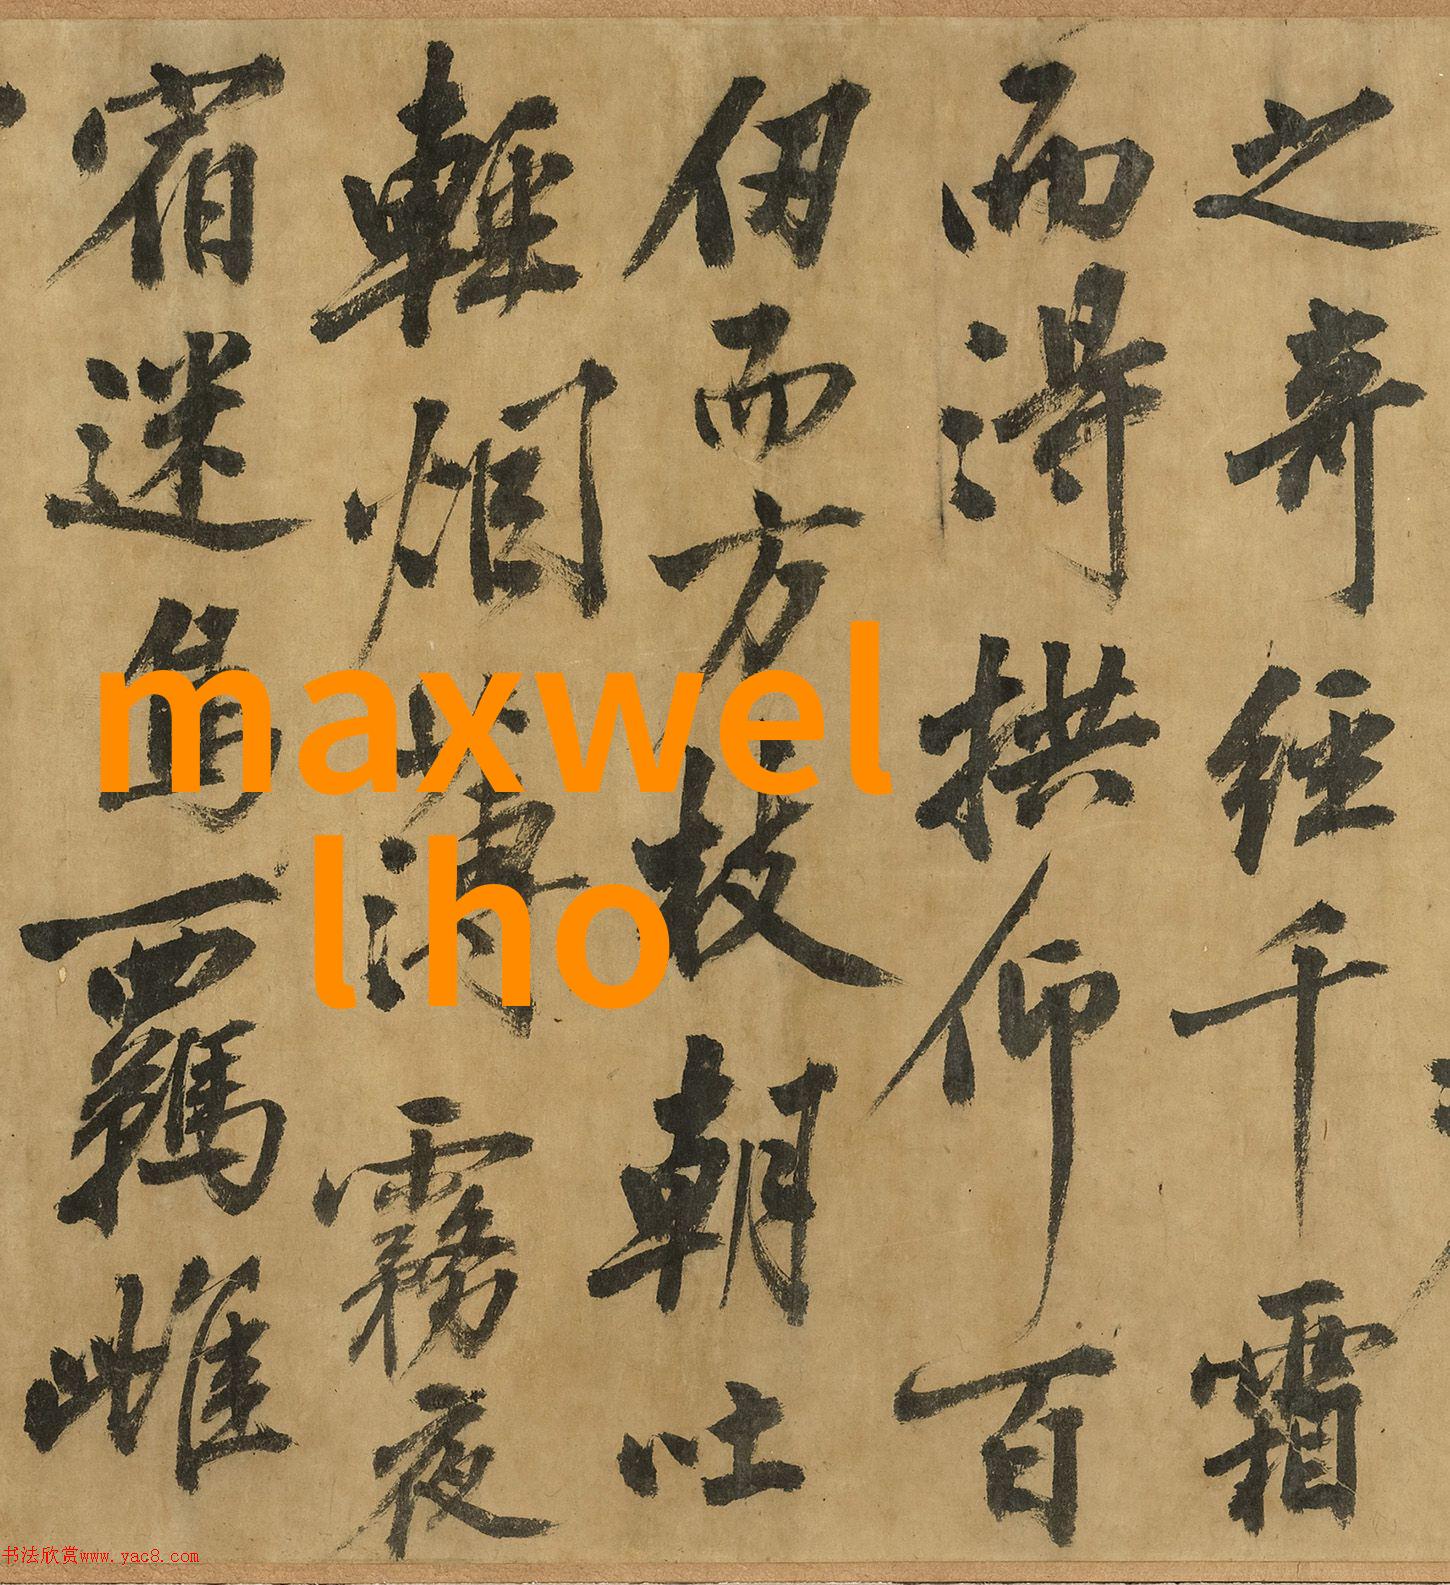 之奇經千霜
而得拱仰百
仞而方枝朝吐
輕烟薄霧夜
宿迷鳥羈雌
maxwel
lho
书法欣赏www.yac8.com